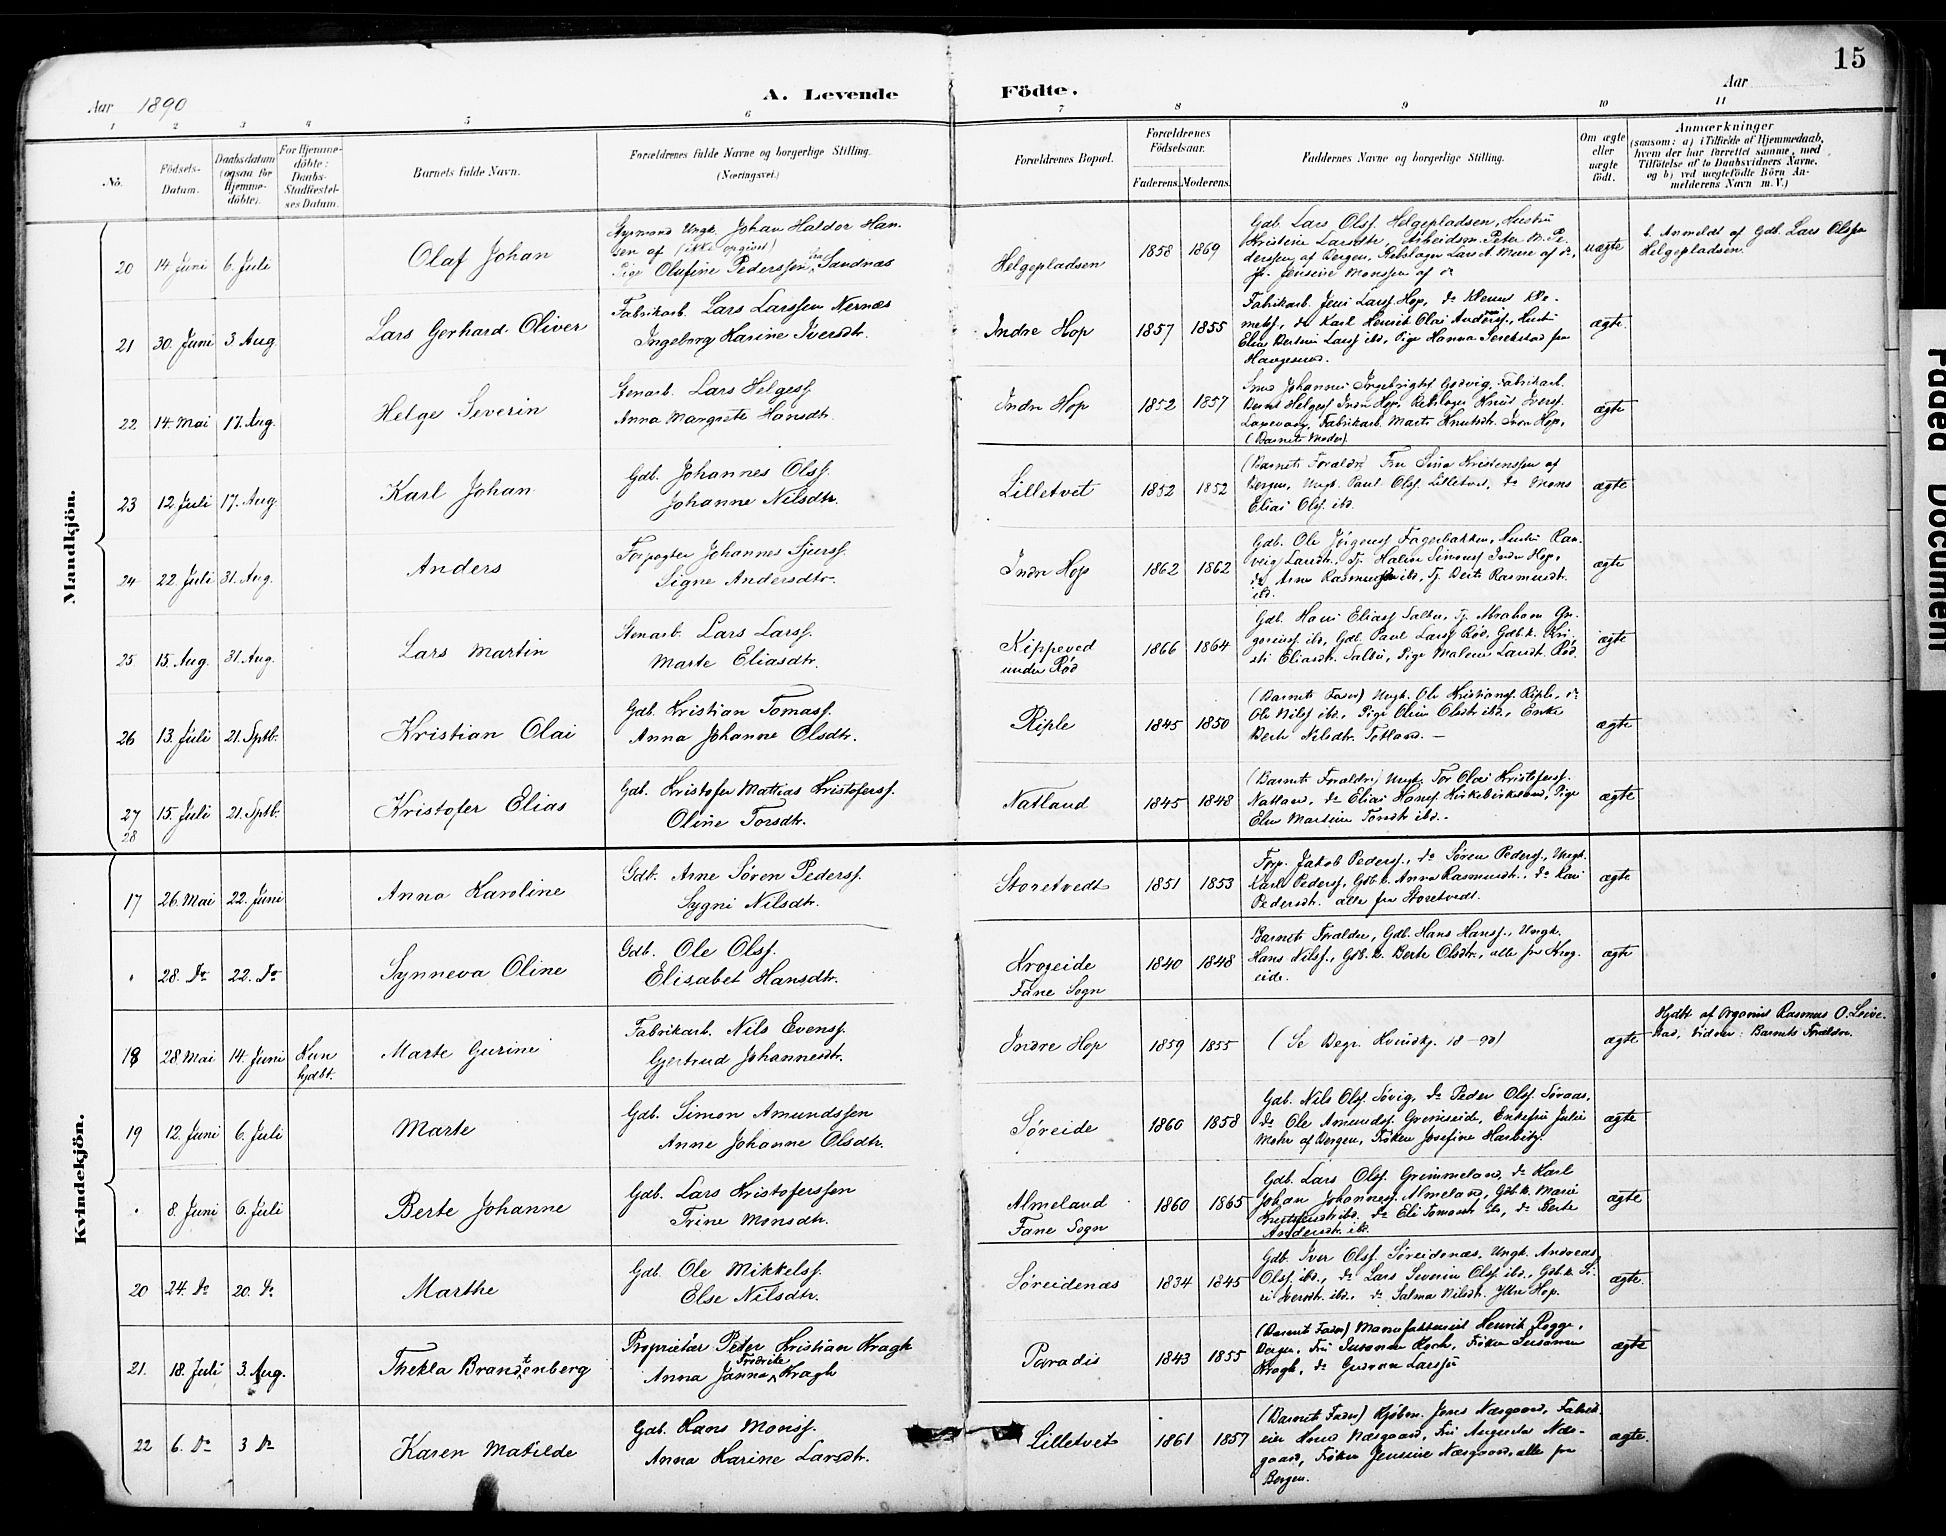 15
Aar 1890
A. Levende Födte.
Aar
1 2 3 4 5 6 7 8 9 10 11
No.
Födsels-Datum.
Daabsdatum (ogsaa for Hjemmedöbte).
For Hjemmedöbte: Daabs-Stadfæstelses Datum.
Barnets fulde Navn.
Forældrenes fulde Navne og borgerlige Stilling.
(Næringsvei.)
Forældrenes Bopæl.
Forældrenes Födselsaar.
Faderens. Moderens.
Faddernes Navne og borgerlige Stilling.
Om ægte eller uægte födt.
Anmærkninger
(saasom: a) i Tilfælde af Hjemmedaab, hvem der har forrettet samme, med Tilföielse af to Daabsvidners Navne, og b) ved uægtefödte Börn Anmelderens Navn m. V.)
Mandkjön.
20 14. Juni 6. Juli Olaf Johan
Ungk. Johan Haldor Hansen af (ikke opgivet)
Pige Olafine Pederssen fra Sandnæs
Helgepladsen 1858 1869
Gdb. Lars Olsf. Helgepladsen, Hustru
uægte
b. Anmeldt af Gdb. Lars Olsen
Helgepladsen.
21 30. Juni 3. Aug. Lars Gerhard Oliver
Fabrikarb. Lars Larssen Nernæs
Ingeborg Karine Iversdtr.
Indre Hop 1857 1855
Fabrikarb. Jens Larsf. Hop,
ægte.
22 14. Mai 17. Aug. Helge Severin
Stenarb. Lars Helgesf.
Anna Margrete Hansdtr.
Indre Hop 1852 1857
(Barnets Moder)
ægte
23 12. Juli 17. Aug. Karl Johan
Gdb. Johannes Olsf.
Johanne Nilsdtr.
Lilletvet 1852 1852
(Barnets Forældre) Fru Sina Kristenssen af
Bergen, Ungk. Paul Olsf. Lilletvet, do Mons
Elias Olsf. ibd.
ægte
24 22. Juli 31. Aug. Anders
Forpagter Johannes Sjursf.
Signe Andersdtr.
Indre Hop 1862 1862
Gdb. Ole Jørgensf. Fagerbakken, Hustru Ran-
ægte
25 15. Aug. 31. Aug. Lars Martin
Stenarb. Lars Larsf.
Marte Eliasdtr.
Kippeved
under Rød
1866 1864
Gdb. Hans Eliasf.
ægte
26 13. Juli 21. Sptb. Kristian Olai
Gdb. Kristian Tomasf.
Anna Johanne Olsdtr.
Riple 1845 1850
(Barnets Fader) Ungk. Ole Kristiansf. Riple, do
Ole Nilsf. ibd., Pige Oline Olsdtr. ibd., Enke
Berte Nilsdtr. Totland. —
ægte
27
28
15. Juli 21. Sptb. Kristofer Elias
Gdb. Kristofer Mathias Kristofersf.
Oline Torsdtr.
Natland 1845 1848
(Barnets Forældre) Ungk. Tor Olai Kristofersf.
Natland, do Elias Hansf. Kirkebirkeland, Pige
Elen Martine Torsdtr. ibd.
ægte
Kvindekjön.
17 26. Mai 22. Juni Anna Karoline
Gdb. Arne Søren Pedersf.
Sygni Nilsdtr.
Storetvedt 1851 1853
Forp. Jakob Pedersf., do Søren Pedersf., Ungk.
Karl Pedersf., Gdb.k. Anna Rasmusdt., do Kari
Pedersdt. alle fra Storetvedt.
ægte
" 28. do 22. do Synneva Oline
Gdb. Ole Olsf.
Elisabet Hansdtr.
Krogeide
Fane Sogn
1840 1848
Barnets Forældre, Gdb. Hans Hansf., Ungk.
Hans Nilsf., Gdb.k. Berte Olsdtr., alle fra Krog-
eide.
ægte
18 28. Mai 14. Juni Kun hjdbt. Marte Gurine
Fabrikarb. Nils Evensf.
Gjertrud Johannesdtr.
Indre Hop 1859 1855
(Se Begr. Kvindkj. 18 - 90)
ægte
Hjdbt. af Organist Rasmus O.
Vidner: Barnets Forældre.
19 12. Juni 6. Juli Marte
Gdb. Simon Amundssen
Anne Johanne Olsdtr.
Søreide 1860 1858
Gdb. Nils Olsf. Søvig, do Peder Olsf. Søraas,
do Ole Amundsf. Grimseide, Enkefru Julie
Mohr af Bergen, Frøken Josefine
ægte
" 8. Juni 6. Juli Berte Johanne
Gdb. Lars Kristoferssen
Trine Monsdtr.
Almeland
Fane Sogn
1860 1865
Gdb. Lars Olsf. Grimmeland, do Karl
Johan Johannesf. Almeland, Gdb.k. Marie
do Eli Tomasdt. ibd, do Berte
Andersdtr. ibd.
ægte
20 24. do 20. do Marthe
Gdb. Ole Mikkelsf.
Else Nilsdtr.
Søreidenæs 1834 1845
Gdb. Iver Olsf. Søreidenæs, Ungk. Andreas
Olsf. ibd., do Lars Severin Olsf. ibd., Gdb.k. Si-
ri Iversdtr. ibd., do Salma Nilsdt. Ytre Hop.
ægte.
21. 18. Juli 3. Aug. Thekla Brandtenberg
Proprietær Peter Kristian Kragh
Anna Janna Fredrike Kragh
Paradis 1843 1855
(Barnets Fader) Manufakturist Henrik Rogge,
Bergen, Fru Susanna Frøken Susanna
Kragh, do Gudrun
ægte
22 6. do 3 do Karen Matilde
Gdb. Hans Monsf.
Anna Karine Larsdtr.
Lilletvet 1861 1857
(Barnets Fader) Kjøbm. Jens Næsgaard, Fabrik-
eier Knud Næsgaard, Fru Augusta Næs-
gaard, Frøken Jensine Næsgaard, alle fra
Bergen.
ægte.
Faded Document